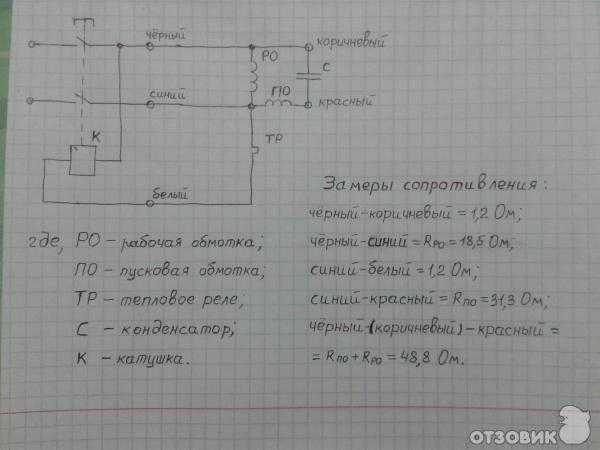 чёрный
коричневый
РО
С
ПО
синий
красный
К
ТР
белый
Замеры сопротивления:
чёрный-коричневый = 1,2 Ом;
чёрный-синий = Rро = 18,5 Ом;
синий-белый = 1,2 Ом;
синий-красный = Rпо = 31,3 Ом;
чёрный-(коричневый)-красный =
= Rпо + Rро = 48,8 Ом.
где, РО - рабочая обмотка;
ПО - пусковая обмотка;
ТР - тепловое реле;
С - конденсатор;
К - катушка.
ОТЗОВИК